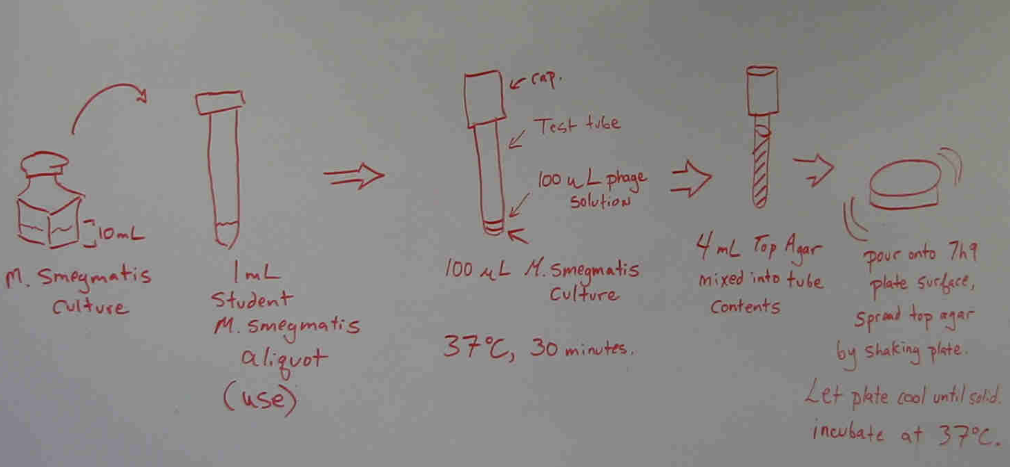 10mL
M. Smegmatis
Culture
1mL
Student
M. smegmatis
aliquot
(use)
cap.
Test tube
100 uL phage
solution
100 µL M. Smegmatis
Culture
37°C, 30 minutes.
4 mL Top Agar
mixed into tube
Contents
pour onto 7h9
plate surface,
spread top agar
by shaking plate.
Let plate cool until solid.
incubate at 37°C.